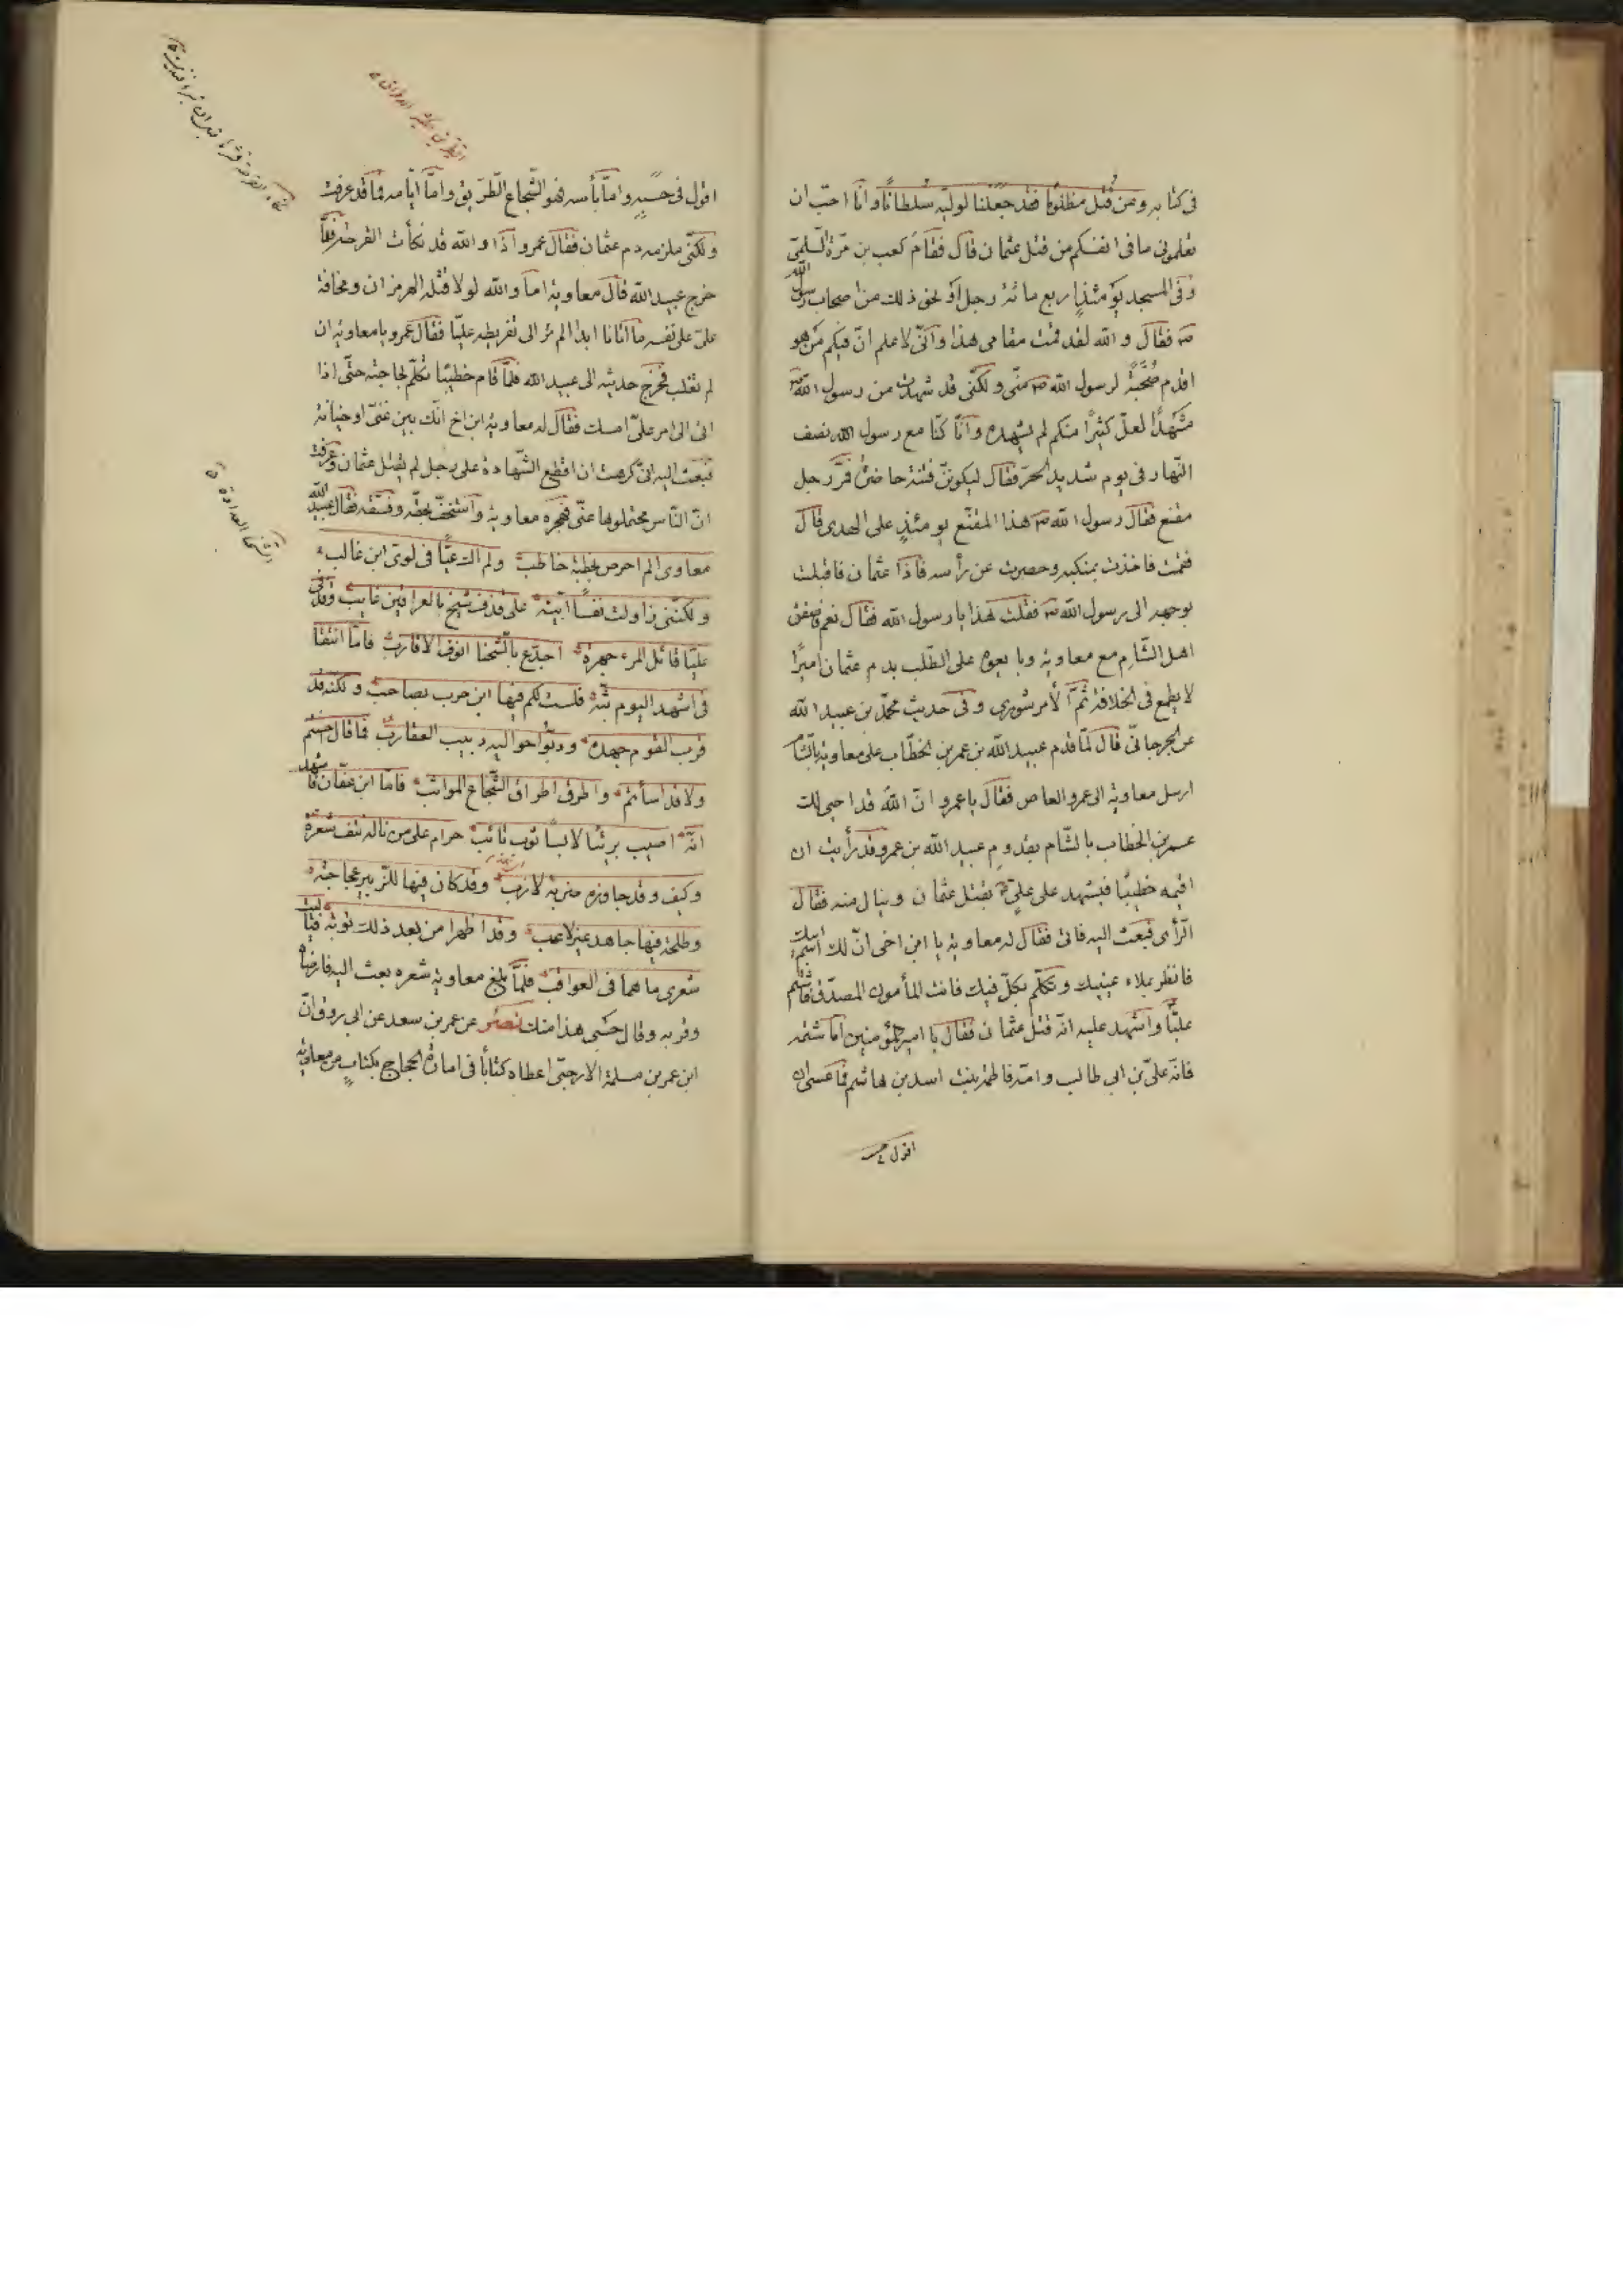 فى كتابه ومن قُتل مظلومًا فقد جعلنا لوليّه سُلطانًا وانا احبّ ان
تعلمونى ما فى انفسكم من قتل عثمان قال فقام كعب بن مرّة السّلمىّ
وفى المسجد يومئذٍ اربع مائة رجل او نحو ذلك من اصحاب رسول الله
صه فقال والله لقد قمت مقامى هذا وانّى لاعلم انّ فيكم من هو
اقدم صُحبَةً لرسول الله صه منّى ولكنّى قد شهدت من رسول الله صه
مشهدًا لعلّ كثيرًا منكم لم يشهده وانّا كنّا مع رسول الله نصف
النّهار فى يوم شديد الحرّ فقال ليكوننّ فتنة حاضرة فمرّ رجل
مقنع فقال رسول الله صه هذا المقنّع يومئذٍ على الهدى قال
فقمت فاخذت بمنكبيه وحصرت عن رأسه فاذا عثمان فاقبلت
بوجهه الى رسول الله صه فقلت هذا يا رسول الله فقال نعم فاصفق
اهل الشّام مع معاوية وبايعوه على الطّلب بدم عثمان اميرًا
لا يطمع فى الخلافة ثمّ الأمر شورى وفى حديث محمّد بن عبيد الله
عن الجرجانىّ قال لمّا قدم عبيد الله بن عمر بن الخطّاب على معاوية بالشّام
ارسل معاوية الى عمرو العاص فقال يا عمرو انّ الله قد احيى لك
عمر بن الخطاب بالشّام بقدوم عبيد الله بن عمر وقد رأيت ان
اقيمه خطيبًا فيشهد على علىّ بقتل عثمان وينال منه فقال
الرّأى فبعث اليه فاتى فقال له معاوية يا ابن اخى انّ لك اسم ابيك
فانظر بملاء عينيك وتكلّم بكلّ فيك فانت المأمون المصدّق فاشتم
عليًّا واشهد عليه انّه قتل عثمان فقال يا امير المؤمنين امّا شتمه
فانّه علىّ بن ابى طالب وامّه فاطمة بنت اسد بن هاشم فما عسى ان
اقول فى
اقول فى حسبه وامّا بأسه فهو الشّجاع الطّريق وامّا ايّامه فما قد عرفت
ولكنّى ملزمه دم عثمان فقال عمرو اذًا والله قد نكأت القرحة فلمّا
خرج عبيد الله قال معاوية اما والله لولا قتله الهرمزان ومخافة
علىّ على نفسه ما اتانا ابدا الم تر الى تقريظه عليًّا فقال عمرو يا معاوية ان
لم تغلب فخرج حديثه الى عبيد الله فلمّا قام خطيبًا تكلّم لحاجته حتّى اذا
اتى الى امر علىّ امسك فقال له معاوية ابن اخ انّك بين عىّ او خيانة
فبعث اليه انّى كرهت ان اقطع الشّهادة على رجل لم يقتل عثمان وعرفت
انّ النّاس محتملوها عنّى فهجره معاوية واستخفّ بحقّه وفسّقه فقال عبيد الله
معاوى لم احرص بخطبة خاطب ولم اك عيًّا فى لوىّ ابن غالب
ولكنّنى زاولت نفسًا ابيّة على قذف شيخ بالعراقين غايب وقذفى
عليًّا قاتل المرء جهرة اجدّع بالشّحنا انوف الاقارب فامّا انتقا
فى اشهد اليوم بثّه فلست لكم فيها ابن حرب بصاحب ولكنه قد
قرب القوم جهده ودبّوا حواليه دبيب العقارب فما قال احسنتم
ولا قد اسأتم واطرق اطراق الشّجاع المواثب فامّا ابن عفّان فاشهد
انّه اصيب بريئًا لابسًا ثوب تائب حرام على من ناله نتف شعره
وكيف وقد جاوزه ضربة لازب وقد كان فيها للزّبير عجاجة
وطلحة فيها جاهد غير لاعب وقد اظهرا من بعد ذلك توبة فيا ليت
شعرى ما هما فى العواقب فلمّا بلغ معاوية شعره بعث اليه فارضاه
وقربه وقال حسبى هذا منك نصر عن عمر بن سعد عن ابى روق انّ
ابن عمر بن مسلمة الارحبىّ اعطاه كتابًا فى امارة الحجاج بكتابٍ من معاوية
الشحنا العداوة ق